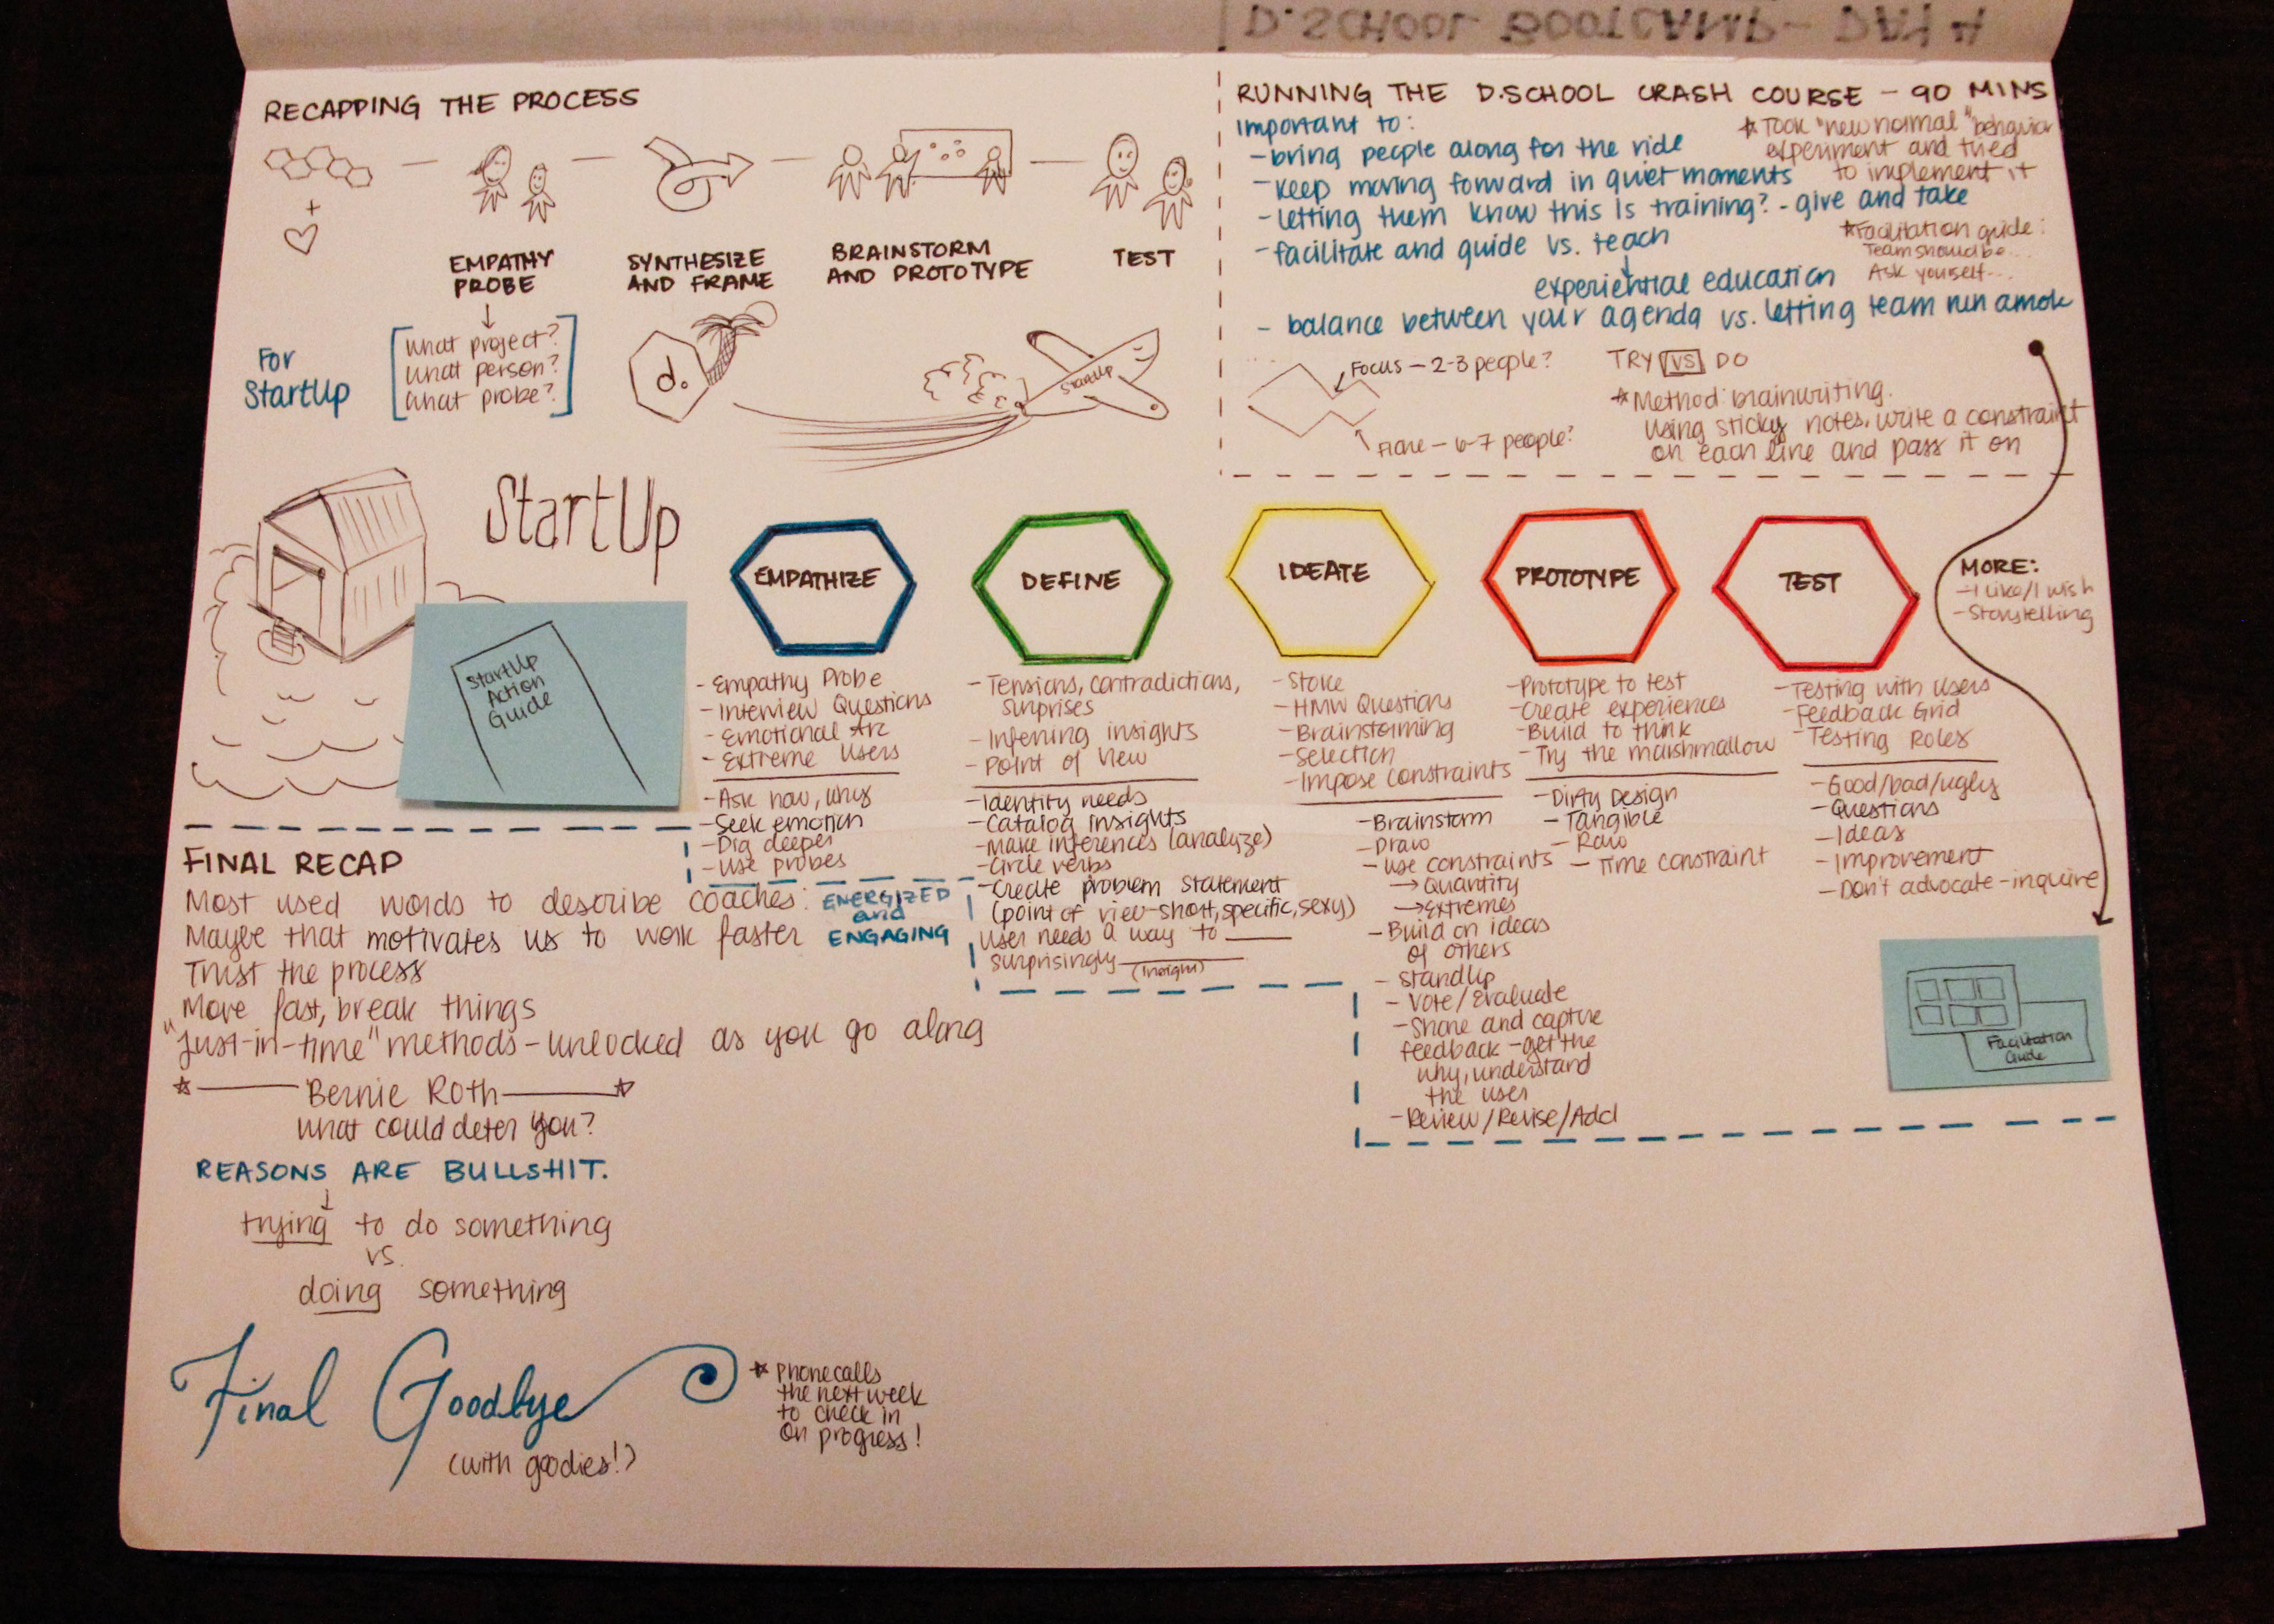 D.SCHOOL BOOTCAMP - DAY 4
RECAPPING THE PROCESS
+
EMPATHY
PROBE
SYNTHESIZE
AND FRAME
BRAINSTORM
AND PROTOTYPE
TEST
For
StartUp
what project?
what person?
what probe?
d.
StartUp
RUNNING THE D.SCHOOL CRASH COURSE - 90 MINS
important to:
- bring people along for the ride
- keep moving forward in quiet moments
- letting them know this is training? - give and take
- facilitate and guide vs. teach
experiential education
- balance between your agenda vs. letting team run amok
* Took "new normal" behavior
experiment and tried
to implement it
* Facilitation guide:
Team should be...
Ask yourself...
Focus - 2-3 people?
Flare - 6-7 people?
TRY VS DO
* Method: brainwriting.
using sticky notes, write a constraint
on each line and pass it on
StartUp
StartUp
Action
Guide
EMPATHIZE
- Empathy Probe
- Interview Questions
- Emotional Arc
- Extreme Users
- Ask how, why
- Seek emotion
- Dig deeper
- Use probes
DEFINE
- Tensions, contradictions,
surprises
- Inferring insights
- Point of View
- Identity needs
- Catalog insights
- Make inferences (analyze)
- Circle verbs
- Create problem statement
(point of view - short, specific, sexy)
User needs a way to ____
surprisingly ____
(insight)
IDEATE
- Stoke
- HMW Questions
- Brainstorming
- Selection
- Impose constraints
- Brainstorm
- Draw
- Use constraints
→ Quantity
→ Extremes
- Build on ideas
of others
- StandUp
- Vote/Evaluate
- Share and capture
feedback - get the
why, understand
the user
- Review/Revise/Add
PROTOTYPE
- Prototype to test
- Create experiences
- Build to think
- Try the marshmallow
- Dirty Design
- Tangible
- Raw
- Time constraint
TEST
- Testing with Users
- Feedback Grid
- Testing Roles
- Good/bad/ugly
- Questions
- Ideas
- Improvement
- Don't advocate - inquire
MORE:
- I like/I wish
- Storytelling
Facilitation
Guide
FINAL RECAP
Most used words to describe coaches: ENERGIZED
and
ENGAGING
Maybe that motivates us to work faster
Trust the process
Move fast, break things
"Just-in-time" methods - unlocked as you go along
Bernie Roth
what could deter you?
REASONS ARE BULLSHIT.
trying to do something
vs.
doing something
Final Goodbye
(with goodies!)
* Phone calls
the next week
to check in
on progress!